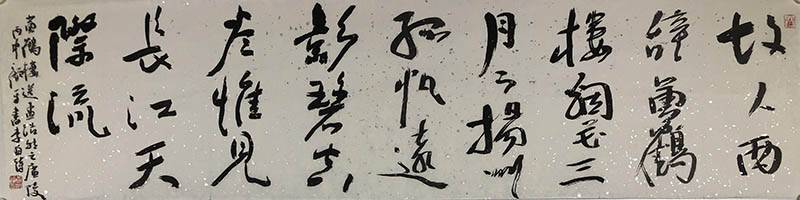 故人西
辭黃鶴
樓烟花三
月下揚州
孤帆遠
影碧空
盡惟見
長江天
際流
黃鶴樓送孟浩然之廣陵
書李白詩